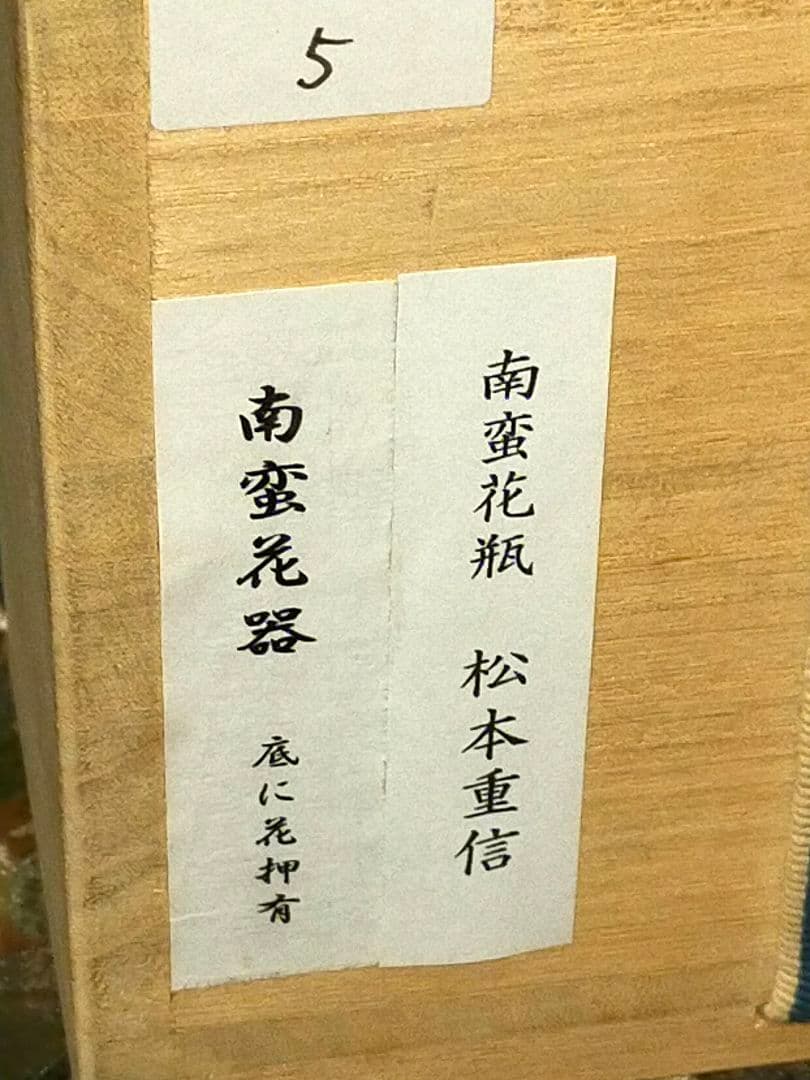 5
南蛮花瓶 松本重信
南蛮花器 底に花押有